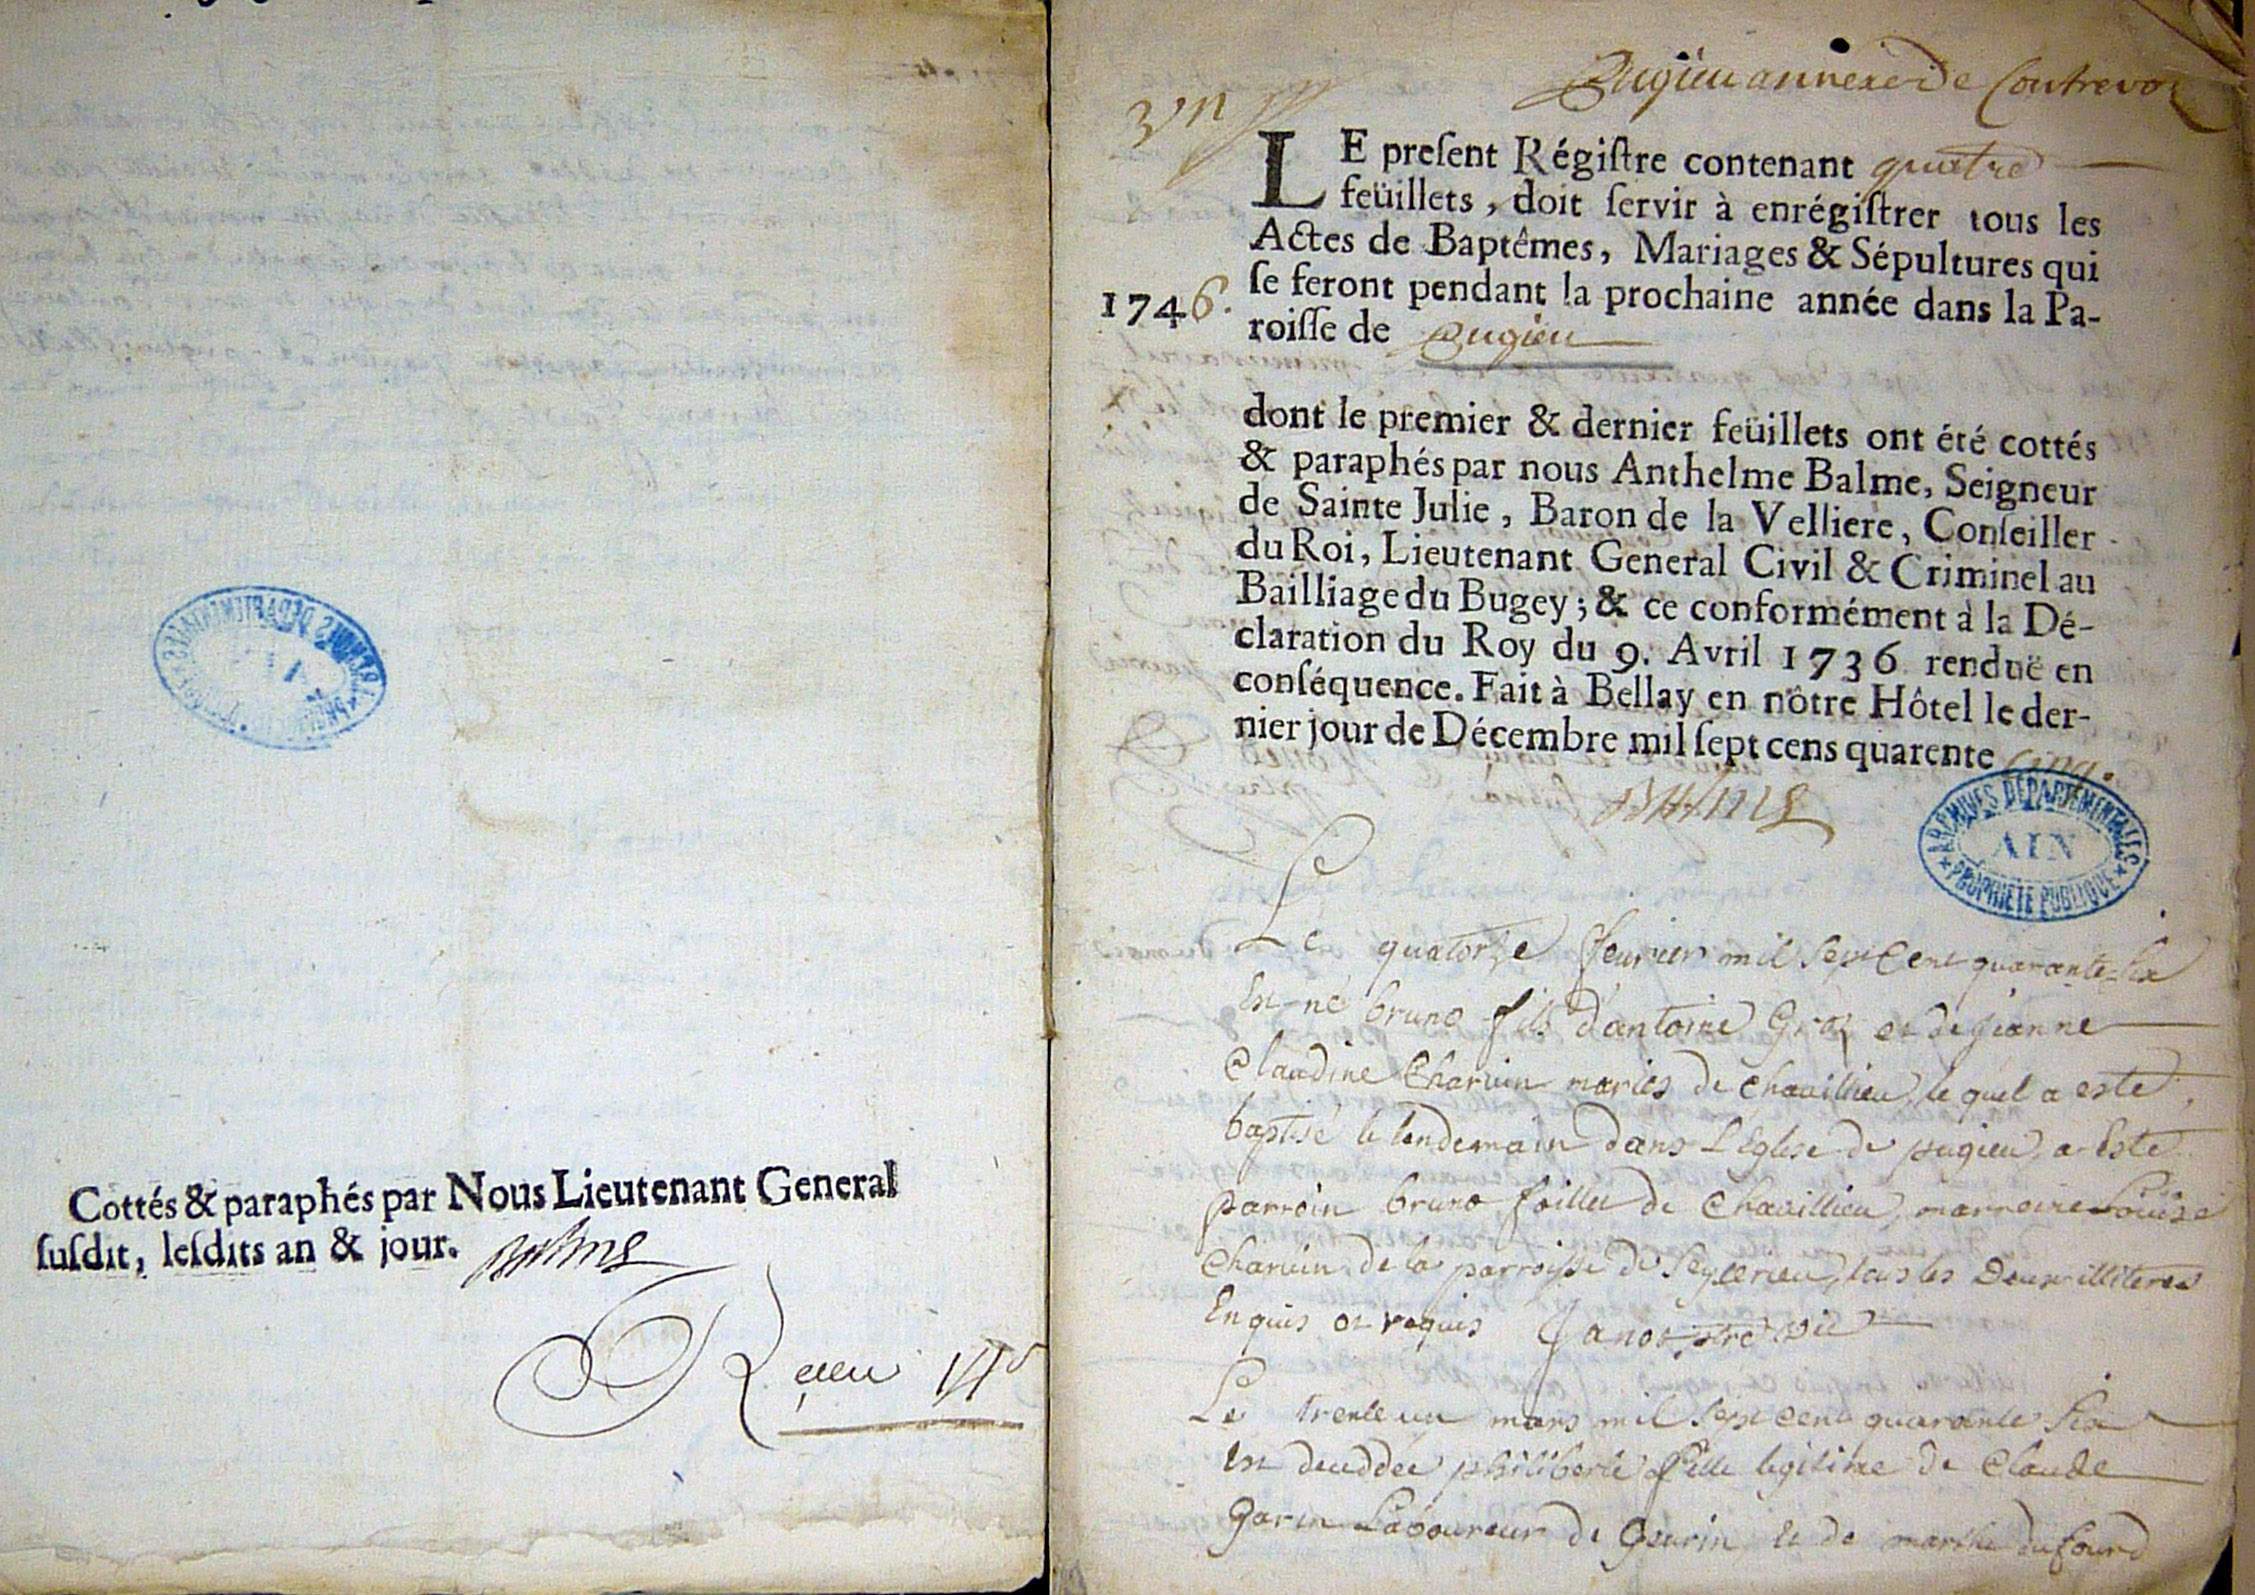 Cottés & paraphés par Nous Lieutenant General
ſuſdit, leſdits an & jour. Balme
Pugieu annexe de Contrevoz
LE preſent Régiſtre contenant quattre
feüillets, doit ſervir à enrégiſtrer tous les
Actes de Baptêmes, Mariages & Sépultures qui
1746. ſe feront pendant la prochaine année dans la Pa-
roiſſe de Pugieu
dont le premier & dernier feüillets ont été cottés
& paraphés par nous Anthelme Balme, Seigneur
de Sainte Julie, Baron de la Velliere, Conſeiller
du Roi, Lieutenant General Civil & Criminel au
Bailliage du Bugey; & ce conformément à la Dé-
claration du Roy du 9. Avril 1736 renduë en
conſéquence. Fait à Bellay en nôtre Hôtel le der-
nier jour de Décembre mil ſept cens quarente cinq.
Balme
ARCHIVES DEPARTEMENTALES
AIN
PROPRIETE PUBLIQUE
Le quatorze feurier mil sept cent quarante six
Est né bruno fils d'antoine Groz et de jeanne
Claudine Charuin mariés de Chauillieu, le quel a esté
baptisé le lendemain dans L'Eglise de pugieu, a Esté
parroin bruno de Chauillieu, marroine Louise
Charuin de la parroisse de Seyzerieu, tous les Deux illiterés
Enquis et requis Janot ptre vic
Le trente un mars mil sept cent quarante six
Est decedée philiberte fille legitime de Claude
Garin Laboureur de et de marthe dufourd